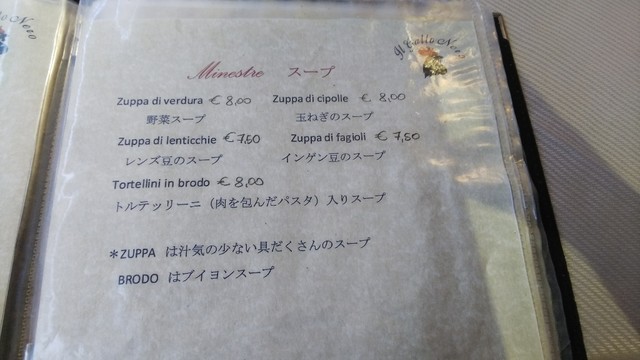 Il Gallo Nero
Minestre スープ
Zuppa di verdura € 8,00 Zuppa di cipolle € 8,00
野菜スープ 玉ねぎのスープ
Zuppa di lenticchie € 7,50 Zuppa di fagioli € 7,50
レンズ豆のスープ インゲン豆のスープ
Tortellini in brodo € 8,00
トルテッリーニ（肉を包んだパスタ）入りスープ
＊ZUPPA は汁気の少ない具だくさんのスープ
BRODO はブイヨンスープ